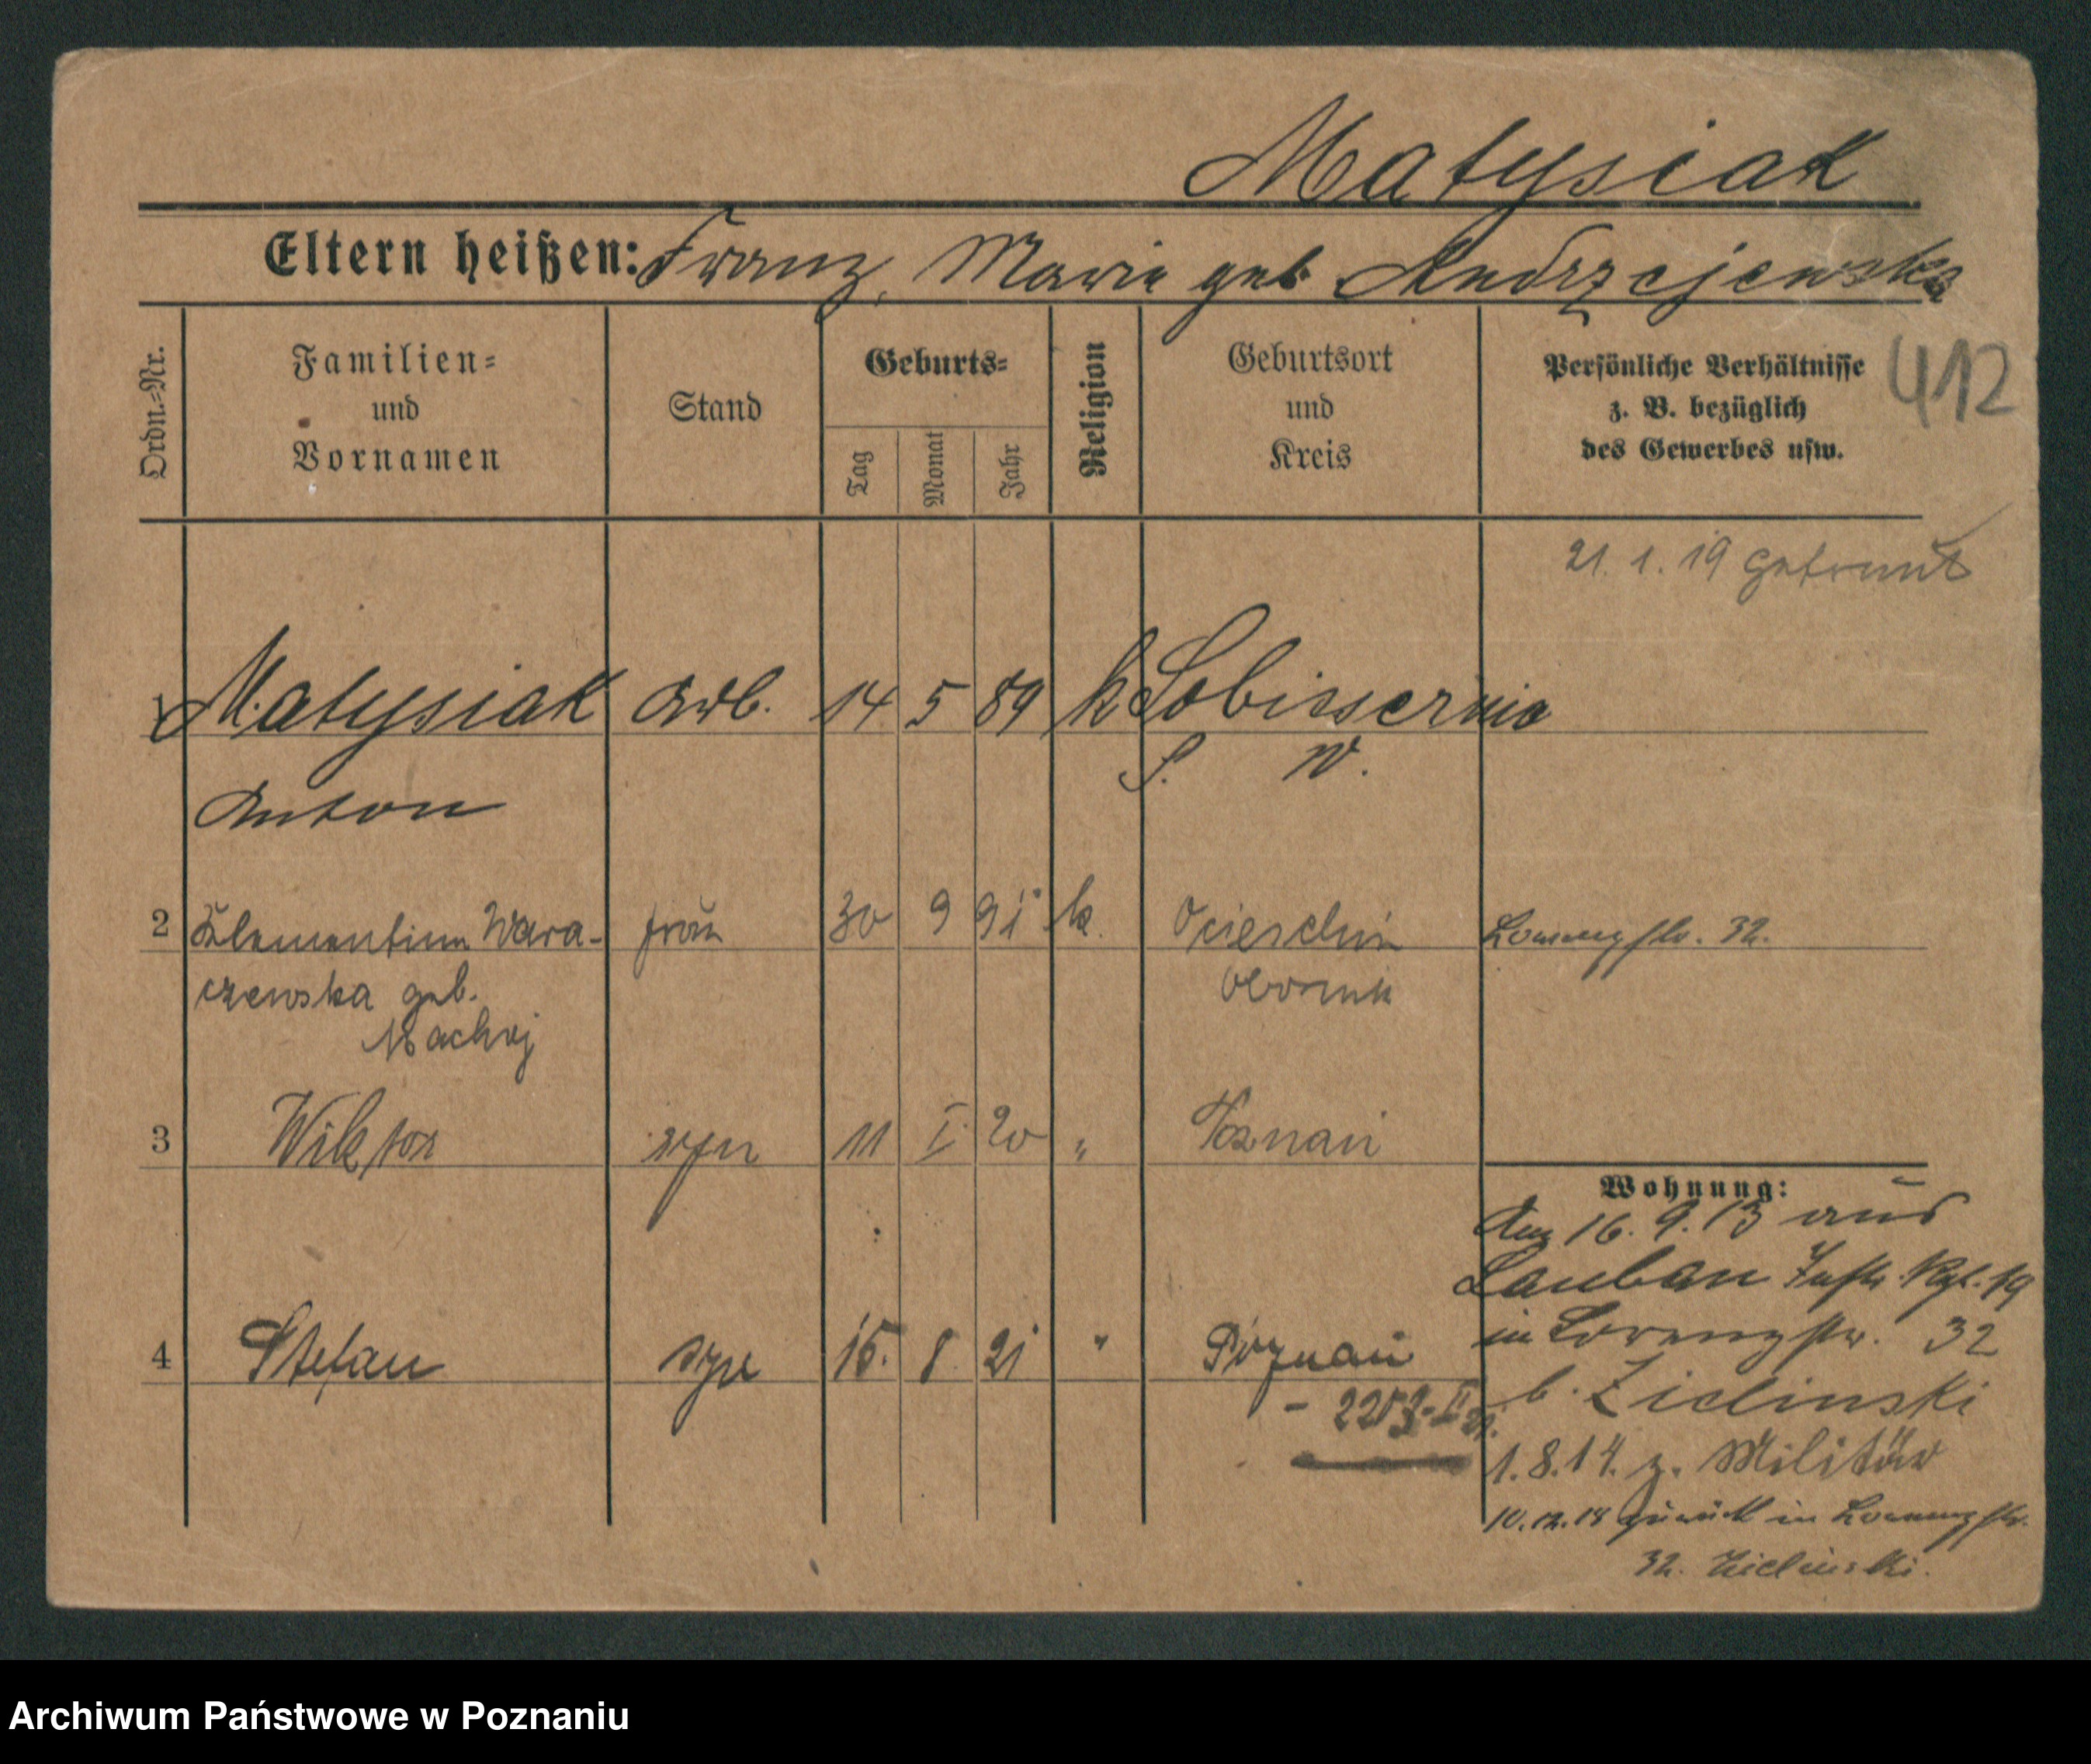 Matysiak
Eltern heißen: Franz, Marie geb. Andrzejewska
Ordn.=Nr.
Familien=
und
Vornamen
Stand
Geburts=
Tag
Monat
Jahr
Religion
Geburtsort
und
Kreis
Persönliche Verhältnisse
z. B. bezüglich
des Gewerbes usw.
412
21. 1. 19 getraut
1 Matysiak Arb. 14 5 89 k
S. W.
Anton
2 Klementina Wara- frau 30 9 91 k. Ocieschin Lorenzstr. 32.
czewska geb. Obornik
Machoj
3 Wiktor syn 11 I 20 " Poznań
Wohnung:
Am 16. 9. 13 aus
Lauban Inftr. Rgt. 19
in Lorenzstr. 32
b. Zielinski
4 Stefan syn 15. 8. 21 " Poznań
1. 8. 14. z. Militär
10. 12. 18 zurück in Lorenzstr.
32. Zielinski.
Archiwum Państwowe w Poznaniu